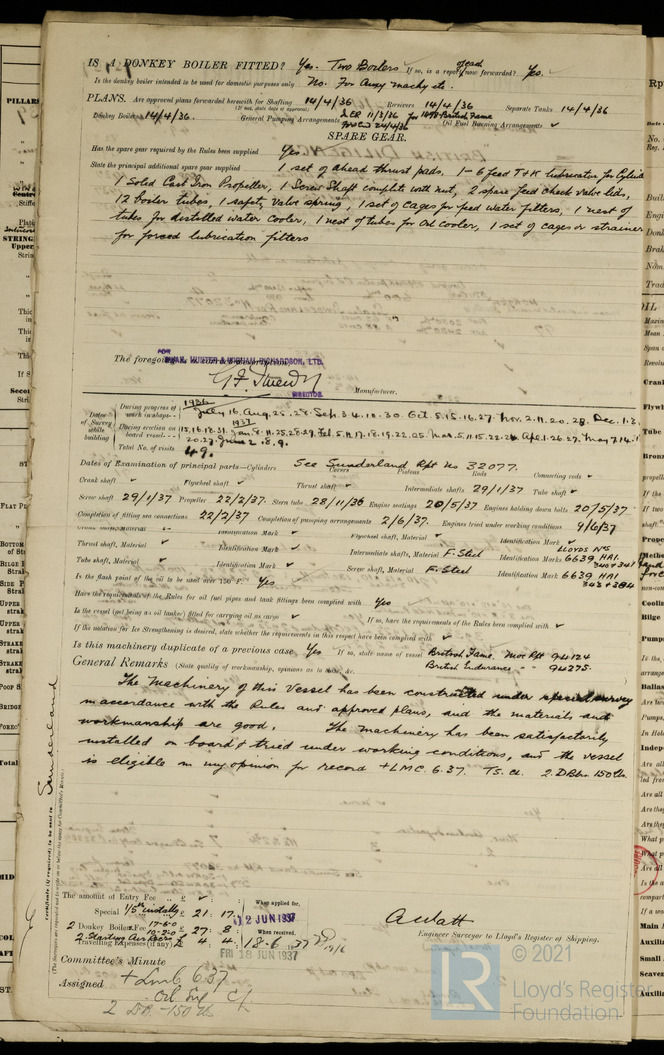 IS A DONKEY BOILER FITTED? Yes. Two Boilers If so, is a report of each now forwarded? Yes.
Is the donkey boiler intended to be used for domestic purposes only No. For Auxy machy etc.
PLANS. Are approved plans forwarded herewith for Shafting 14/4/36 Receivers 14/4/36 Separate Tanks 14/4/36
(If not, state date of approval)
Donkey Boilers 14/4/36. General Pumping Arrangements for 1098 British Fame Oil Fuel Burning Arrangements
SPARE GEAR.
Has the spare gear required by the Rules been supplied Yes
State the principal additional spare gear supplied 1 set of ahead thrust pads, 1 - 6 feed T+K lubricator for
1 Solid Cast Iron Propeller, 1 Screw Shaft complete with nut, 2 spare feed check valve lids,
12 boiler tubes, 1 safety valve spring, 1 set of cages for feed water filters, 1 nest of
tubes for distilled water cooler, 1 nest of tubes for oil cooler, 1 set of cages or strainer
for forced lubrication filters
The foregoing
FOR
SWAN, HUNTER & WIGHAM RICHARDSON, LTD.
DIRECTOR
Manufacturer.
Dates of Survey while building
During progress of work in shops-- 1936 July 16. Aug. 25. 28. Sep. 3. 4. 10. 30. Oct. 5. 15. 16. 27. Nov. 2. 11. 20. 28. Dec. 1. 3.
During erection on board vessel--- 15. 16. 18. 31. 1937 Jan. 8. 11. 25. 28. 29. Feb. 5. 11. 17. 18. 19. 22. 25. Mar. 5. 11. 15. 22. Apr. 1. 26. 27. May 7. 14.
20. 27. June 2. 8. 9.
Total No. of visits 49.
Dates of Examination of principal parts—Cylinders See Sunderland Rpt No 32077. Covers Pistons Rods Connecting rods
Crank shaft Flywheel shaft Thrust shaft Intermediate shafts 29/1/37 Tube shaft
Screw shaft 29/1/37 Propeller 22/2/37. Stern tube 28/11/36 Engine seatings 20/5/37 Engines holding down bolts 20/5/37
Completion of fitting sea connections 22/2/37 Completion of pumping arrangements 2/6/37. Engines tried under working conditions 9/6/37
Crank shaft, Material Identification Mark Flywheel shaft, Material Identification Mark
Thrust shaft, Material Identification Mark Intermediate shafts, Material F. Steel Identification Marks LLOYDS Nos 6639 HAI.
Tube shaft, Material Identification Mark Screw shaft, Material F. Steel Identification Mark 6639 HAI
Is the flash point of the oil to be used over 150°F. Yes
Have the requirements of the Rules for oil fuel pipes and tank fittings been complied with Yes
Is the vessel (not being an oil tanker) fitted for carrying oil as cargo If so, have the requirements of the Rules been complied with
If the notation for Ice Strengthening is desired, state whether the requirements in this respect have been complied with
Is this machinery duplicate of a previous case Yes If so, state name of vessel British Fame. Nwc Rpt 94124
British Endurance " " 94275.
General Remarks (State quality of workmanship, opinions as to class, &c.
The Machinery of this Vessel has been constructed under special survey
in accordance with the Rules and approved plans, and the materials and
workmanship are good. The machinery has been satisfactorily
installed on board & tried under working conditions, and the vessel
is eligible in my opinion for record +LMC. 6.37. TS. CL. 2 DBs. 150 lb.
Sunderland
Certificate (if required) to be sent to
The amount of Entry Fee £ When applied for,
Special 1/5th installn £ 21 : 17 : 12 JUN 1937
2 Donkey Boiler Fee 17-6-0 £ 27 : 8 When received,
2 Starting Air Recrs 10-2-0
Travelling Expenses (if any) £ 4 : 4 : 18.6.1937
A Watt
Engineer Surveyor to Lloyd's Register of Shipping.
Committee's Minute FRI 18 JUN 1937
Assigned + LMC 6.37
Oil Eng CL
2 DB. - 150 lb
© 2021
LR
Lloyd's Register
Foundation